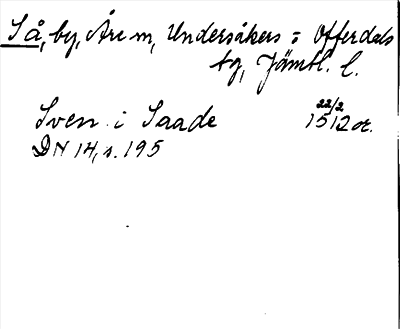 Så, by, Åre sn, Undersåkers o Offerdals
tg, Jämtl. l.
22/2
Sven i Saade 1512 or.
DN 14, s. 195